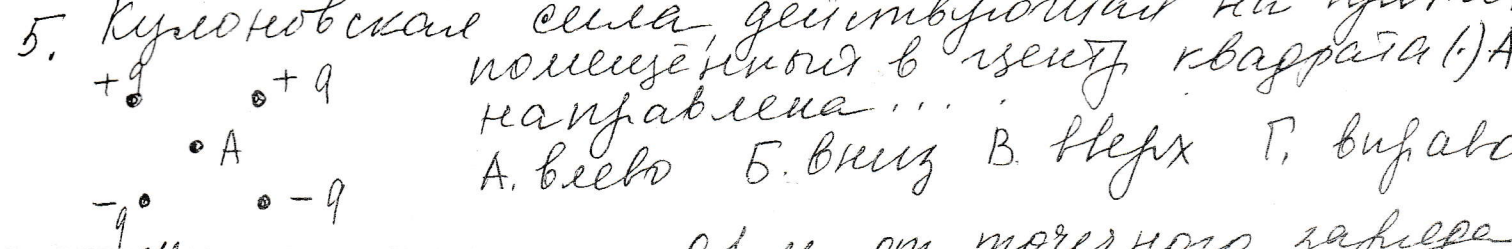 5. Кулоновская сила, действующая на
помещённый в центр квадрата (·) А
направлена....
А. влево Б. вниз В. вверх Г. вправо
+q +q
А
-q -q
от точечного заряда